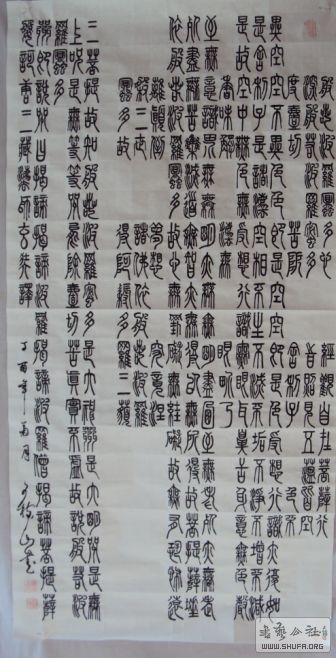 般若波羅蜜多
經觀自在菩薩行
度一切苦厄
舍利子色不
異空空不異色色即是空空即是色受想行識亦復如
是舍利子是諸法空相不生不滅不垢不淨不增不減
是故空中無色無受想行識無眼耳鼻舌身意無色聲
香味觸法無眼界乃
至無意識界無無明亦無無明盡乃至無老死亦無老
死盡無苦集滅道無智亦無得以無所得故菩提薩埵
依般若波羅蜜多故心無罣礙無罣礙故無有恐怖遠
離顛倒夢想究竟涅
槃三世諸佛依般若波羅
蜜多故得阿耨多羅三藐
三菩提故知般若波羅蜜多是大神咒是大明咒是無
上咒是無等等咒能除一切苦真實不虛故說般若波
羅蜜多咒
即說咒曰揭諦揭諦波羅揭諦波羅僧揭諦菩提薩
婆訶唐三藏法師玄奘譯
丁酉年
WWW.SHUFA.ORG